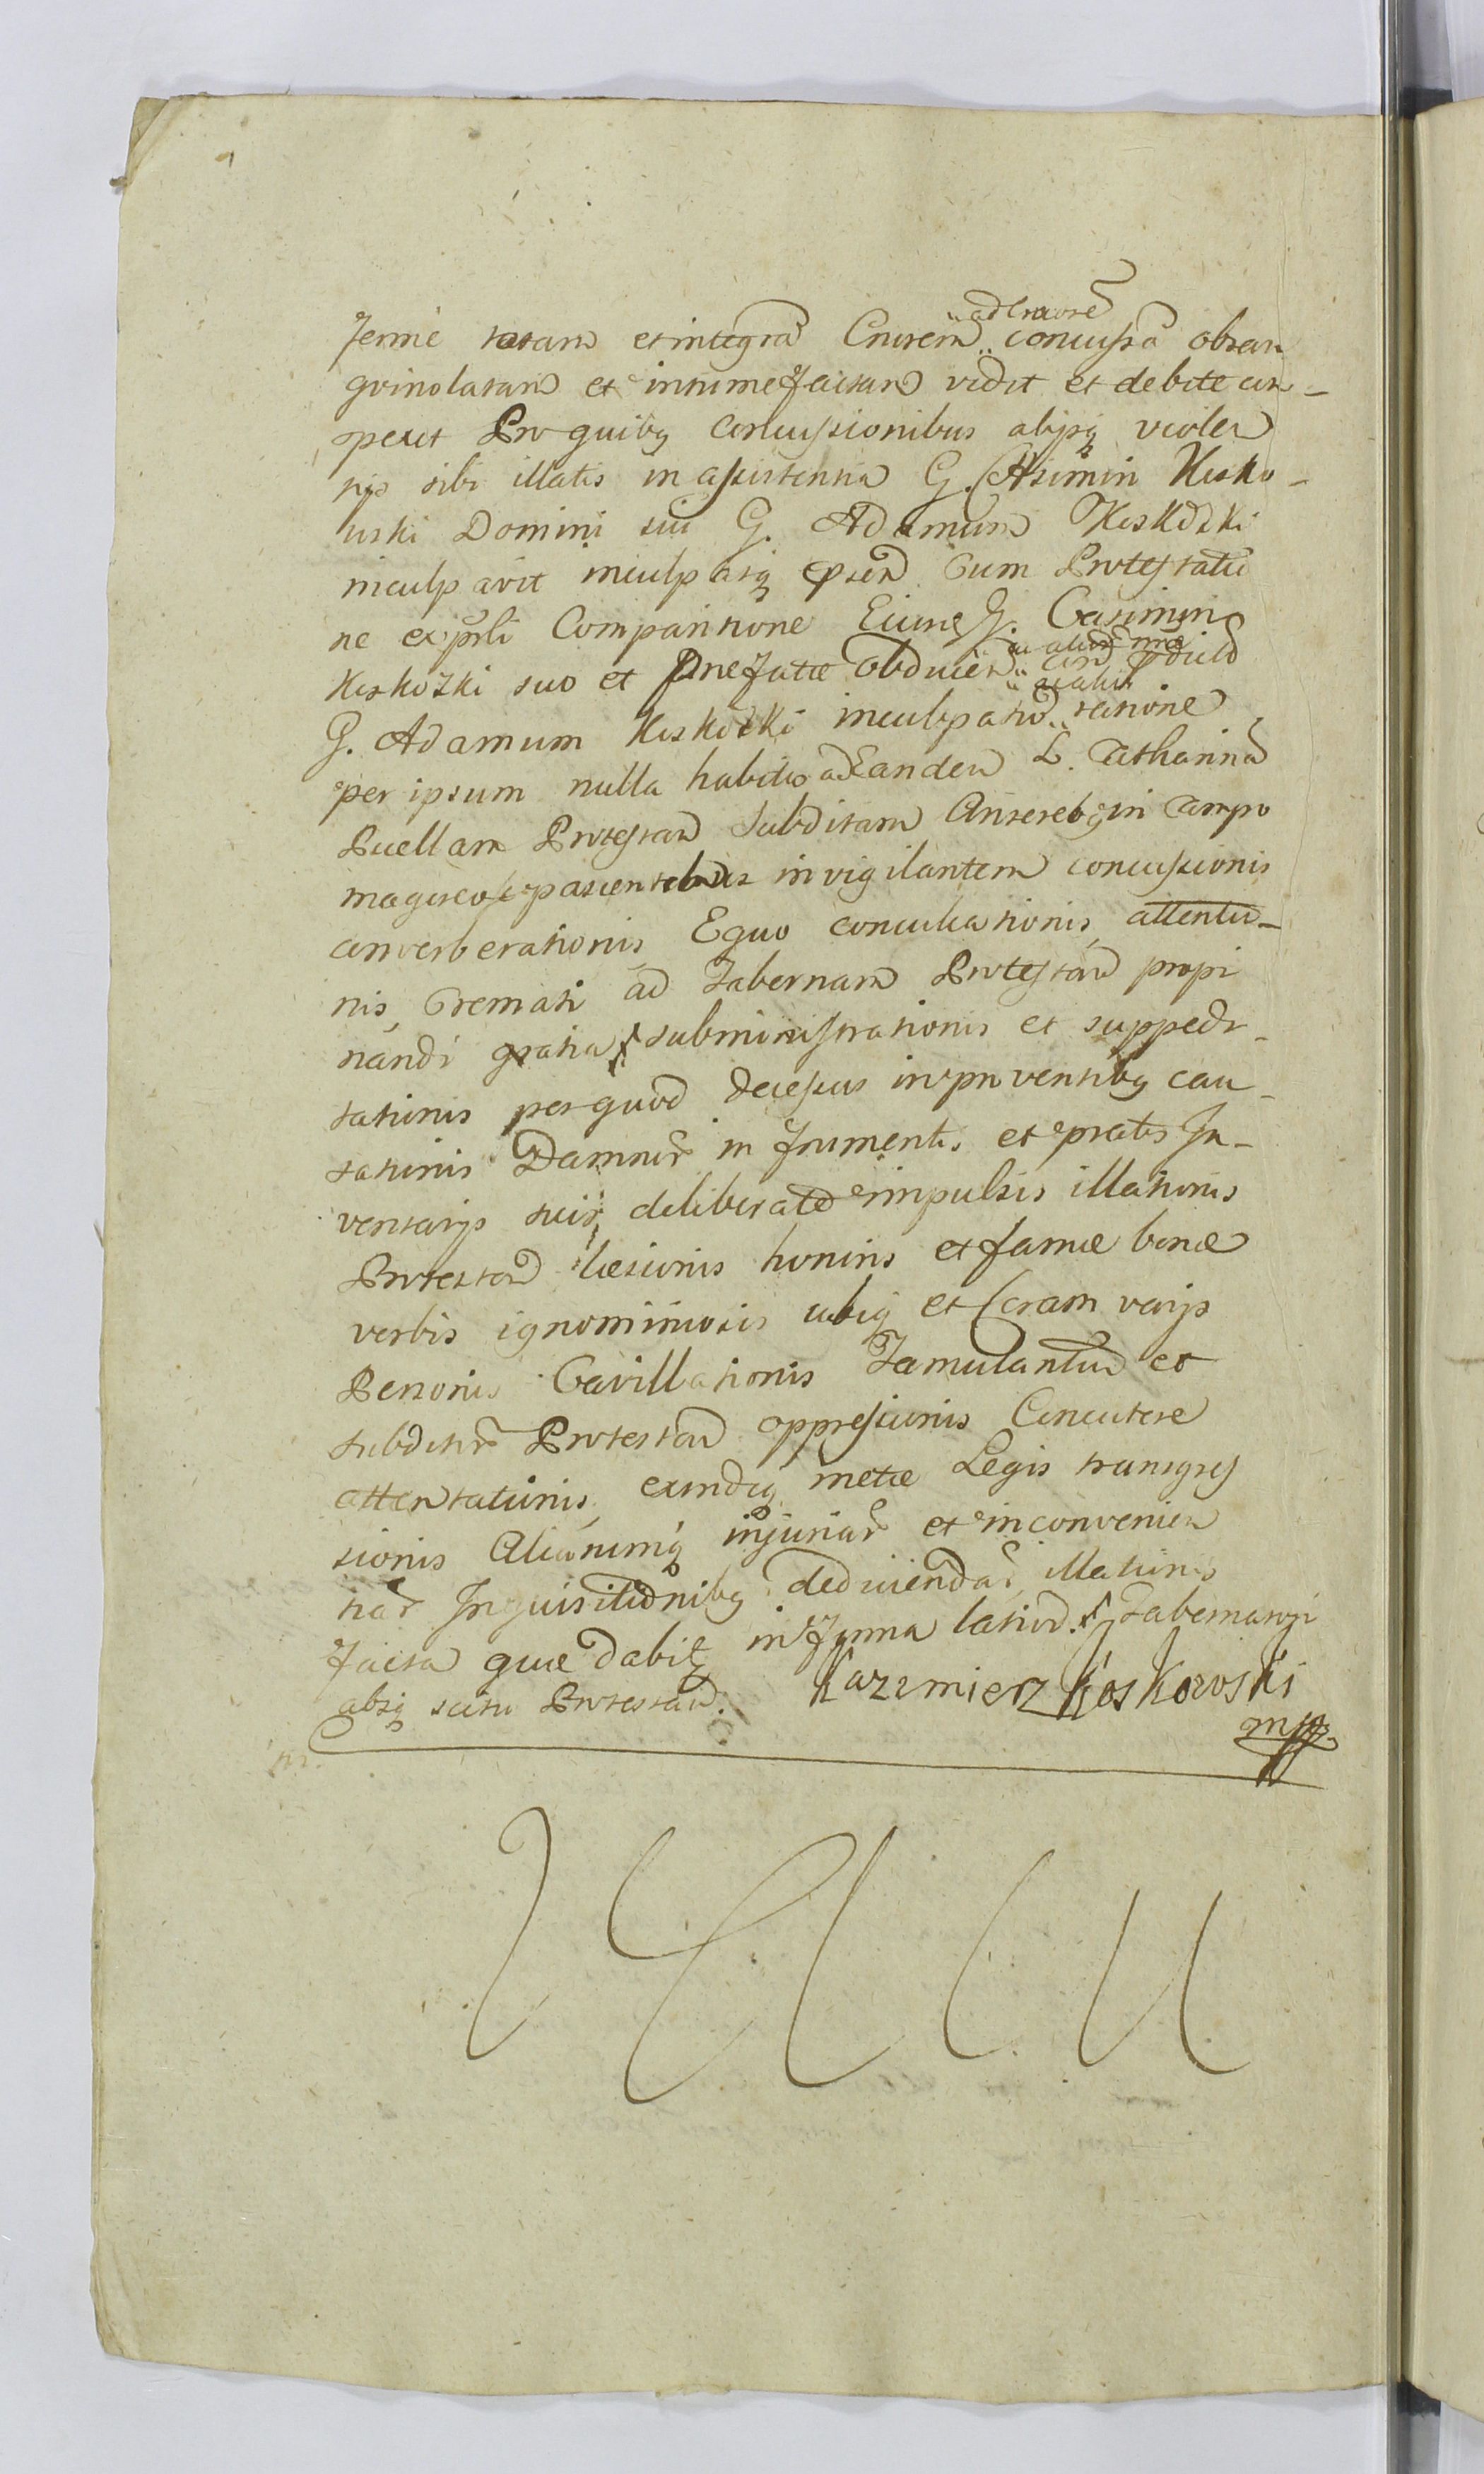 ad Cruore
ferme totam et integra Crurem concussa obsan
gvinolatam et intumefactam vidit et debite con-
spexit Pro quibq concussionibus alijsq violen
tijs sibi illatis in assistentia G. Casimiri Kosko-
wski Domini sui G. Adamum Koskozki
inculpavit inculpatq psen Cum Protestatio
ne ex psti Comparitione Eiusdem G. Casimiri
Koskozki suo et Prefatae obducen
G. Adamum Koskozki inculpatio ratione
per ipsum nulla habita ad Eandem L. Catharina
Puellam Protestan Subditam Anseribq in Campo
pascentibus invigilantem concussionis
converberationis Equo conculcationis attentu-
nis, Cremati ad Tabernam Protestan propi
nandi gratia subministrationis et suppedi-
tationis per quod decessus in proventibq cau-
sationis Damnor in frumentis et pratis In-
ventarijs suis deliberate impulsis illationis
Protestan laesionis honoris et famae bonae
verbis ignominiosis ubiq et Coram varijs
Personis Cavillationis Famulantium et
subditor Protestan oppressionis Concutere
attentationis, exindeq metae Legis transgres
sionis Aliarumq injuriar et inconvenien
tiar Inquisitionibq deducendar illationis
facta quae dabit in forma latior. Tabernarys
absq scitu Protestan. Kazimierz Koskowski
mpp